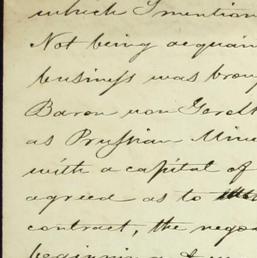 which I mention
Not being acquain
business was brou
Baron von Gerolt
as Prussian Minis
with a capital of
agreed as to
contract, the nego
beginning